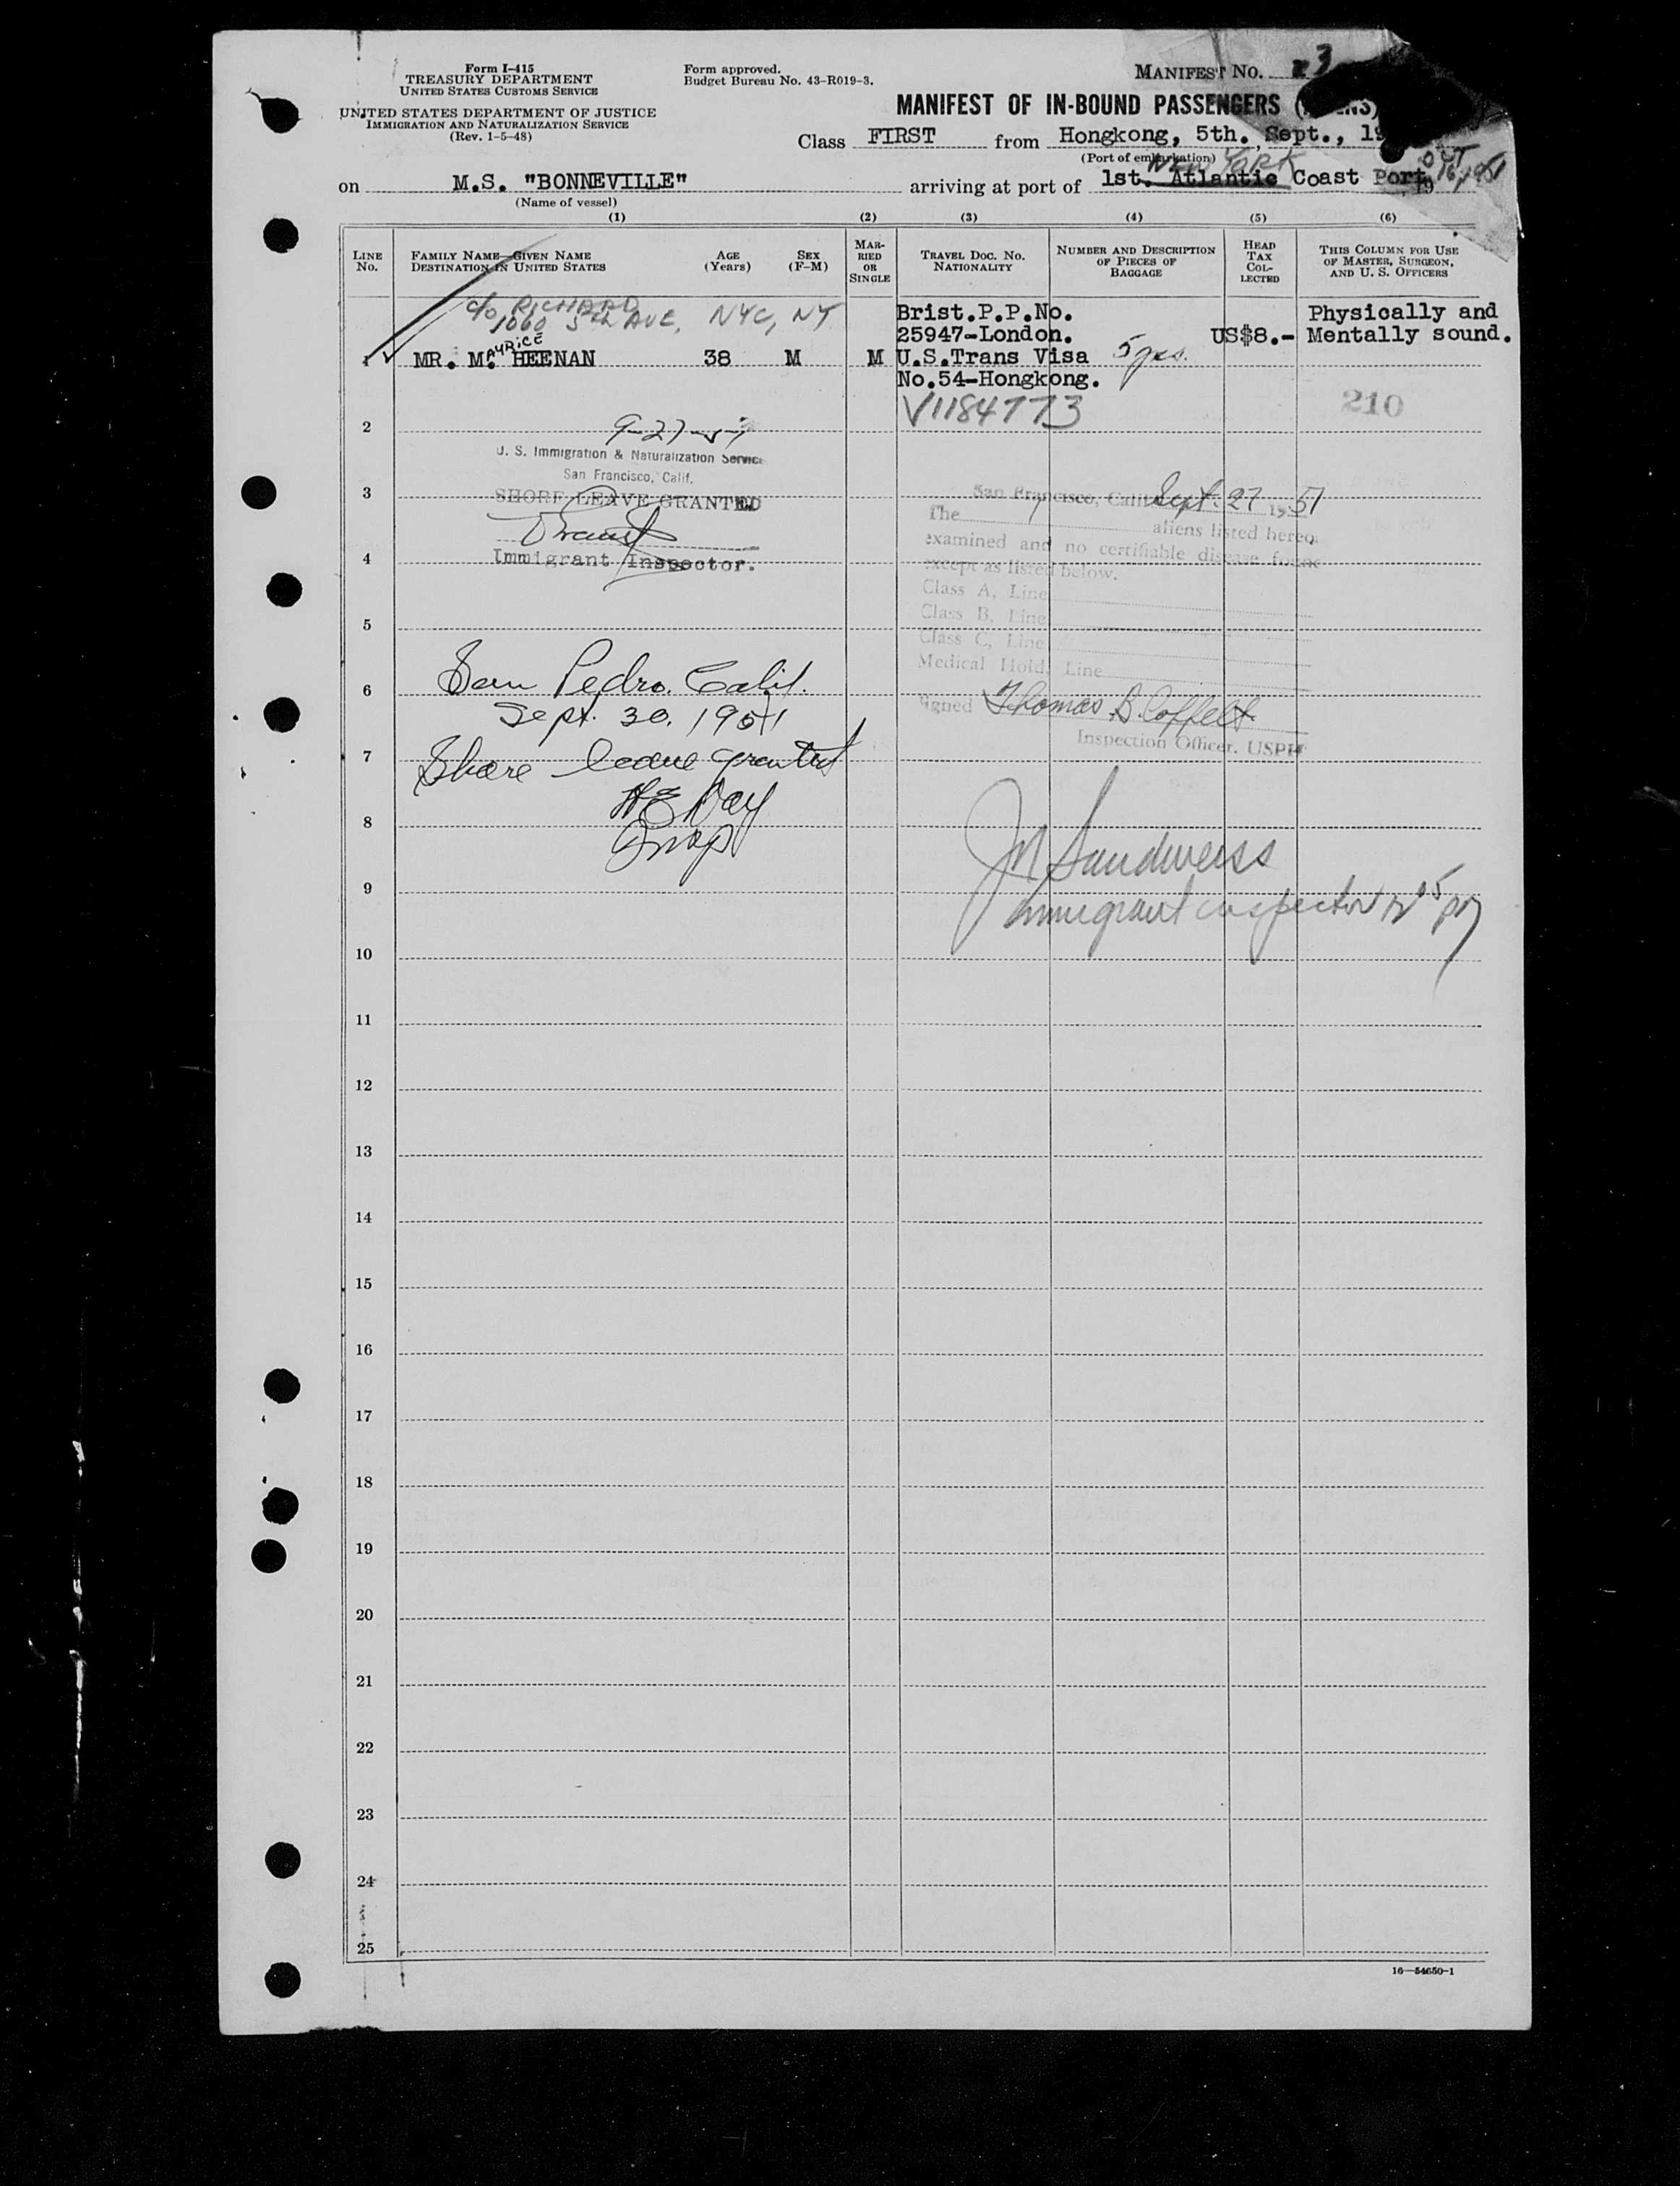 Form I-415
TREASURY DEPARTMENT
UNITED STATES CUSTOMS SERVICE
UNITED STATES DEPARTMENT OF JUSTICE
IMMIGRATION AND NATURALIZATION SERVICE
(Rev. 1-5-48)
Form approved.
Budget Bureau No. 43-R019-3.
MANIFEST No. 3
MANIFEST OF IN-BOUND PASSENGERS
Class FIRST from Hongkong, 5th., Sept., 19
(Port of embarkation)
NEW YORK OCT 16, 1951
on M.S. "BONNEVILLE" arriving at port of 1st. Atlantic Coast Port, 19
(Name of vessel)
(1) (2) (3) (4) (5) (6)
LINE No.
FAMILY NAME—GIVEN NAME
DESTINATION IN UNITED STATES
AGE (Years)
SEX (F-M)
MARRIED OR SINGLE
TRAVEL DOC. NO.
NATIONALITY
NUMBER AND DESCRIPTION OF PIECES OF BAGGAGE
HEAD TAX COLLECTED
THIS COLUMN FOR USE OF MASTER, SURGEON, AND U. S. OFFICERS
c/o RICHARD
1060 5th AVE, NYC, NY
Brist.P.P.No.
25947-London.
US$8.-
Physically and
Mentally sound.
1 MR. M. AURICE HEENAN 38 M M U.S.Trans Visa 5 pcs.
No.54-Hongkong.
V1184773
210
2
9-27-51
U. S. Immigration & Naturalization Service
San Francisco, Calif.
3 SHORE LEAVE GRANTED
4 Immigrant Inspector.
San Francisco, Calif. Sept. 27 1951
The aliens listed hereon
examined and no certifiable disease found
except as listed below.
Class A, Line
5 Class B, Line
Class C, Line
Medical Hold, Line
6 San Pedro. Calif.
Sept. 30. 1951
Signed Thomas B. Coffelt
Inspection Officer. USPH
7 Shore leave granted
8 HE Day
Insp
JM Sandweiss
9 Immigrant inspector
10
11
12
13
14
15
16
17
18
19
20
21
22
23
24
25
16—54650-1